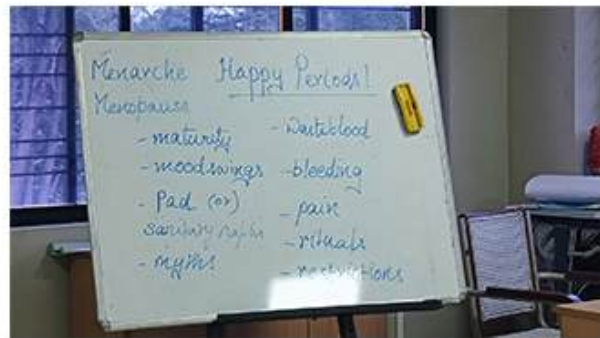 Menarche Happy Periods!
Menopause
- maturity
- moodswings
- Pad (or)
sanitary napkin
- myths
- Wasteblood
- bleeding
- pain
- rituals
- restrictions